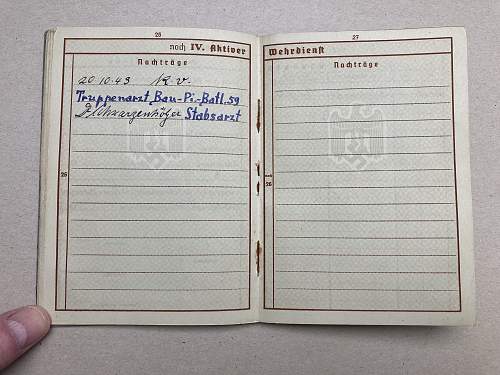 25
noch IV. Aktiver
Nachträge
20.10.43 K.v.
Truppenarzt Bau-Pi.-Batl. 59
Stabsarzt
26
27
Wehrdienst
Nachträge
noch
26